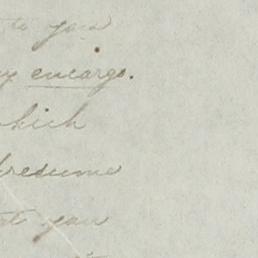 to you
my encargo.
which
presume
that you